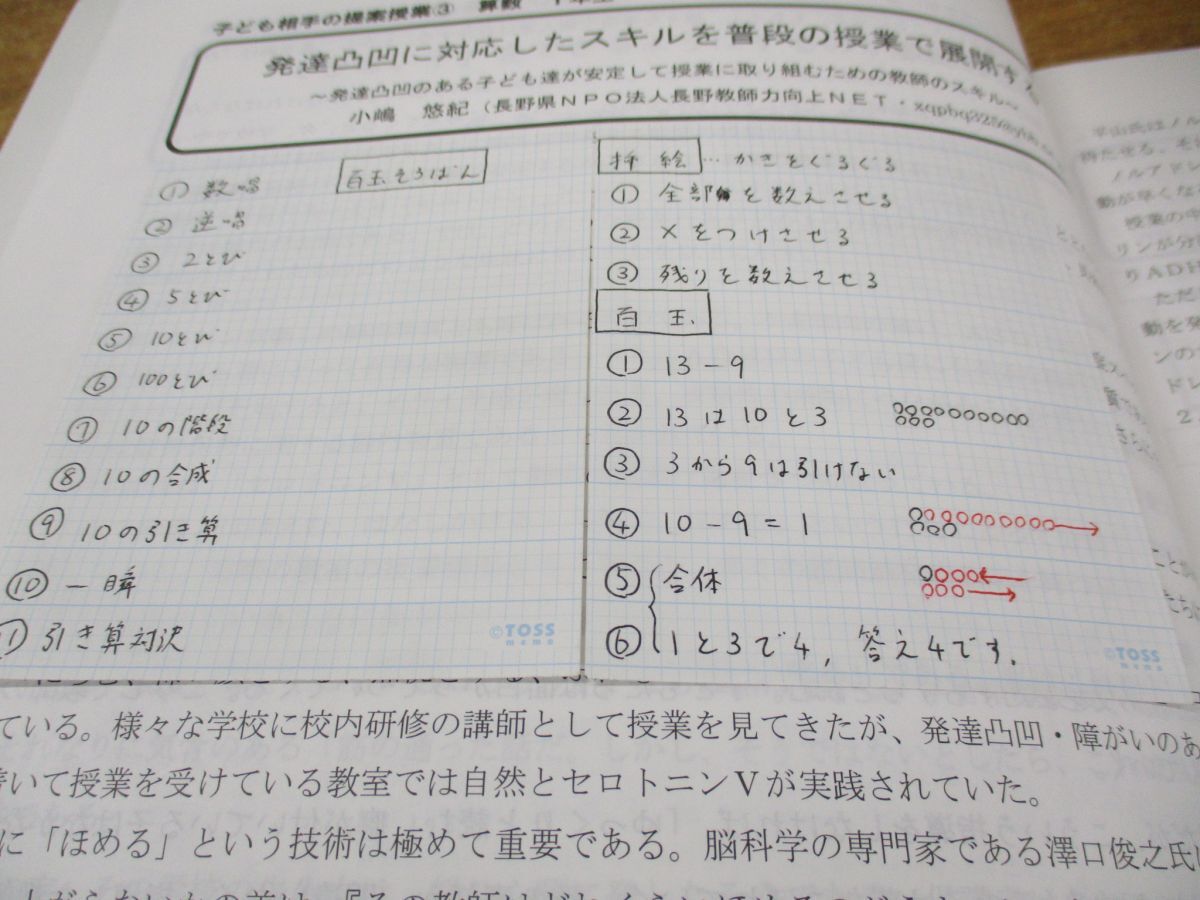 子ども相手の提案授業③ 算数
発達凸凹に対応したスキルを普段の授業で展開す
～発達凸凹のある子ども達が安定して授業に取り組むための教師のスキル～
小嶋 悠紀（長野県NPO法人長野教師力向上NET・
百玉そろばん
① 数唱
② 逆唱
③ 2とび
④ 5とび
⑤ 10とび
⑥ 100とび
⑦ 10の階段
⑧ 10の合成
⑨ 10の引き算
⑩ 一瞬
引き算対決
©TOSS
memo
挿 絵 … かきをぐるぐる
① 全部を数えさせる
② ×をつけさせる
③ 残りを数えさせる
百 玉.
① 13－9
② 13は10と3
③ 3から9は引けない
④ 10－9＝1
⑤ 合体
⑥ 1と3で4, 答え4です.
©TOSS
memo
ている。様々な学校に校内研修の講師として授業を見てきたが、発達凸凹・障がいのあ
いて授業を受けている教室では自然とセロトニンVが実践されていた。
に「ほめる」という技術は極めて重要である。脳科学の専門家である澤口俊之氏
平山氏はノル
ノルアドレ
動が早くな
授業の中
リンが分
りADH
ただ
動を発
ンの
ドレ
2